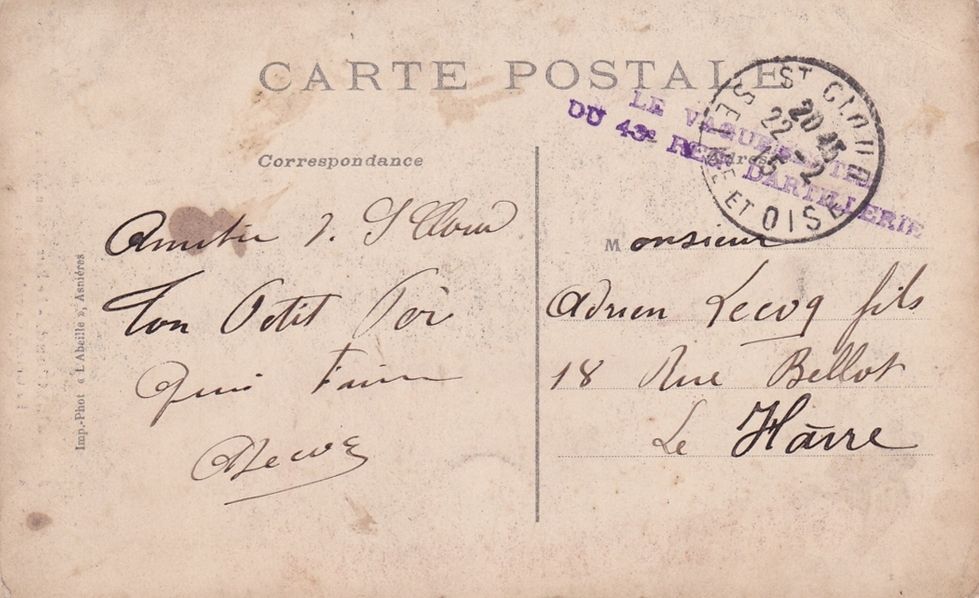 CARTE POSTALE
ST CLOUD
20 45
22 - 2
15
SEINE ET OISE
LE VAGUEMESTRE
DU 43e REGt D'ARTILLERIE
Correspondance
Adresse
Ton Petit
Qui
ALecoq
Monsieur
Adrien Lecoq fils
18 Rue Bellot
Le Hâvre
Imp.-Phot « L'Abeille », Asnières